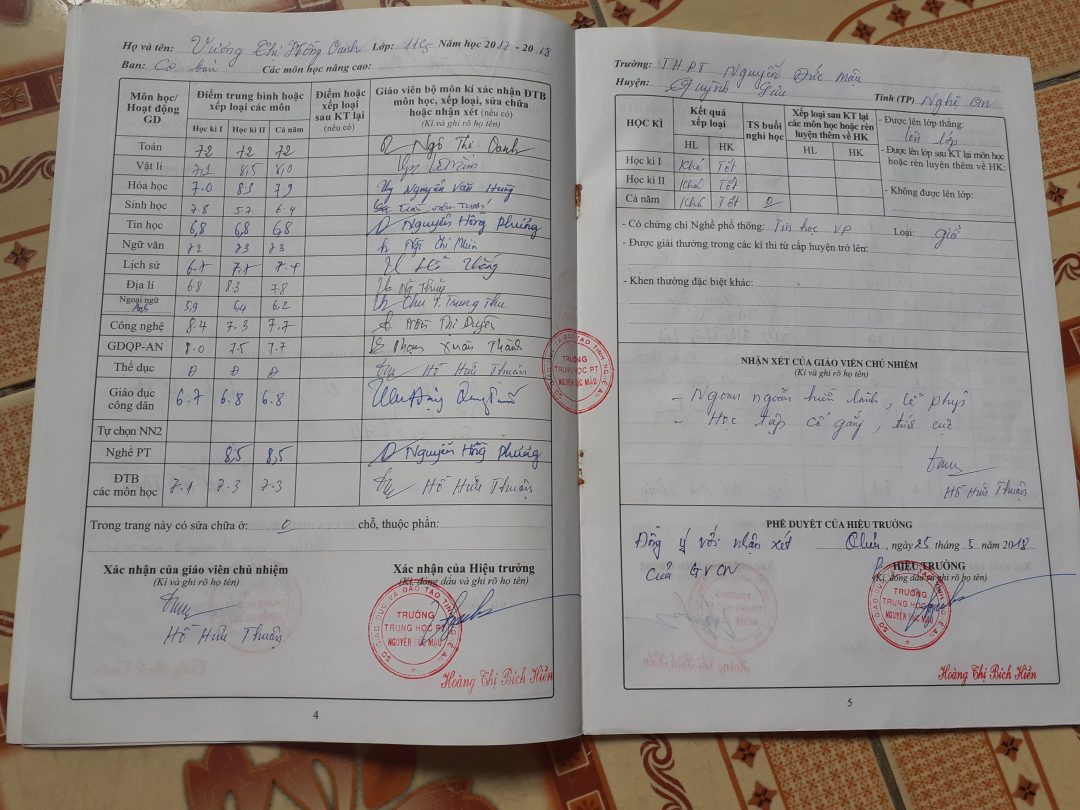 Họ và tên: Vương Thị Hồng Oanh Lớp: 11C5 Năm học 2017 - 2018
Ban: Cơ bản Các môn học nâng cao:
Môn học/ Hoạt động GD | Điểm trung bình hoặc xếp loại các môn | Điểm hoặc xếp loại sau KT lại (nếu có) | Giáo viên bộ môn kí xác nhận ĐTB môn học, xếp loại, sửa chữa hoặc nhận xét (nếu có) (Kí và ghi rõ họ tên)
Học kì I | Học kì II | Cả năm
Toán 7.2 7.2 7.2 Ngô Thị Oanh
Vật lí 7,1 8,5 8,0
Hóa học 7.0 8.3 7.9 Nguyễn Văn Hưng
Sinh học 7.8 5.7 6.4
Tin học 6,8 6,8 6,8 Nguyễn Hồng Phượng
Ngữ văn 7.2 7.3 7.3
Lịch sử 6.7 7.7 7.4 Hồ Thắng
Địa lí 6.8 8.3 7.8
Ngoại ngữ Anh 5,9 6,4 6.2 Chu T. Trung Thu
Công nghệ 8.4 7.3 7.7 Thị Duyên
GDQP-AN 8.0 7.5 7.7 Phạm Xuân Thành
Thể dục Đ Đ Đ Hồ Hữu Thuận
Giáo dục công dân 6.7 6.8 6.8
Tự chọn NN2
Nghề PT 8,5 8,5 Nguyễn Hồng Phượng
ĐTB các môn học 7.1 7.3 7.3 Hồ Hữu Thuận
Trong trang này có sửa chữa ở: 0 chỗ, thuộc phần:
Xác nhận của giáo viên chủ nhiệm
(Kí và ghi rõ họ tên)
Hồ Hữu Thuận
Xác nhận của Hiệu trưởng
(Kí, đóng dấu và ghi rõ họ tên)
SỞ GIÁO DỤC VÀ ĐÀO TẠO TỈNH NGHỆ AN
TRƯỜNG
TRUNG HỌC PT
NGUYỄN ĐỨC MẬU
Hoàng Thị Bích Hiền
4
TRƯỜNG
TRUNG HỌC PT
NGUYỄN ĐỨC MẬU
Trường: THPT Nguyễn Đức Mậu
Huyện: Quỳnh Lưu Tỉnh (TP) Nghệ An
HỌC KÌ | Kết quả xếp loại | TS buổi nghỉ học | Xếp loại sau KT lại các môn học hoặc rèn luyện thêm về HK
HL | HK | HL | HK
Học kì I Khá Tốt
Học kì II Khá Tốt
Cả năm Khá Tốt 0
- Được lên lớp thẳng:
lên lớp
- Được lên lớp sau KT lại môn học hoặc rèn luyện thêm về HK:
- Không được lên lớp:
- Có chứng chỉ Nghề phổ thông: Tin học VP Loại: giỏi
- Được giải thưởng trong các kì thi từ cấp huyện trở lên:
- Khen thưởng đặc biệt khác:
NHẬN XÉT CỦA GIÁO VIÊN CHỦ NHIỆM
(Kí và ghi rõ họ tên)
- Ngoan ngoãn hiền lành, lễ phép
- Học tập cố gắng, tích cực
Hồ Hữu Thuận
PHÊ DUYỆT CỦA HIỆU TRƯỞNG
Đồng ý với nhận xét
của GVCN
ngày 25 tháng 5 năm 2018
HIỆU TRƯỞNG
(Kí, đóng dấu và ghi rõ họ tên)
TRƯỜNG
TRUNG HỌC PT
NGUYỄN ĐỨC MẬU
Hoàng Thị Bích Hiền
5